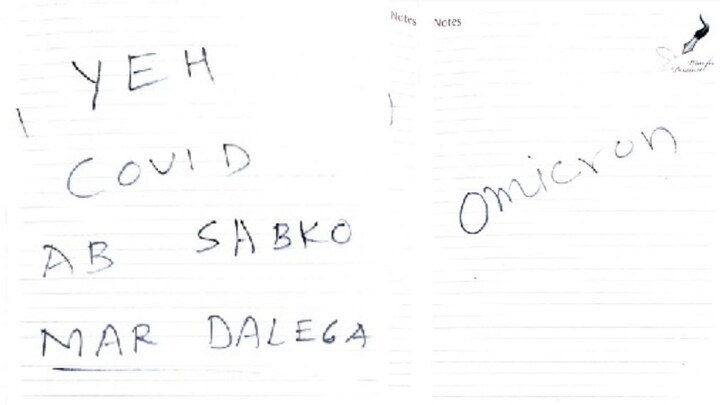 Notes Notes
YEH
COVID
AB SABKO
MAR DALEGA
Omicron